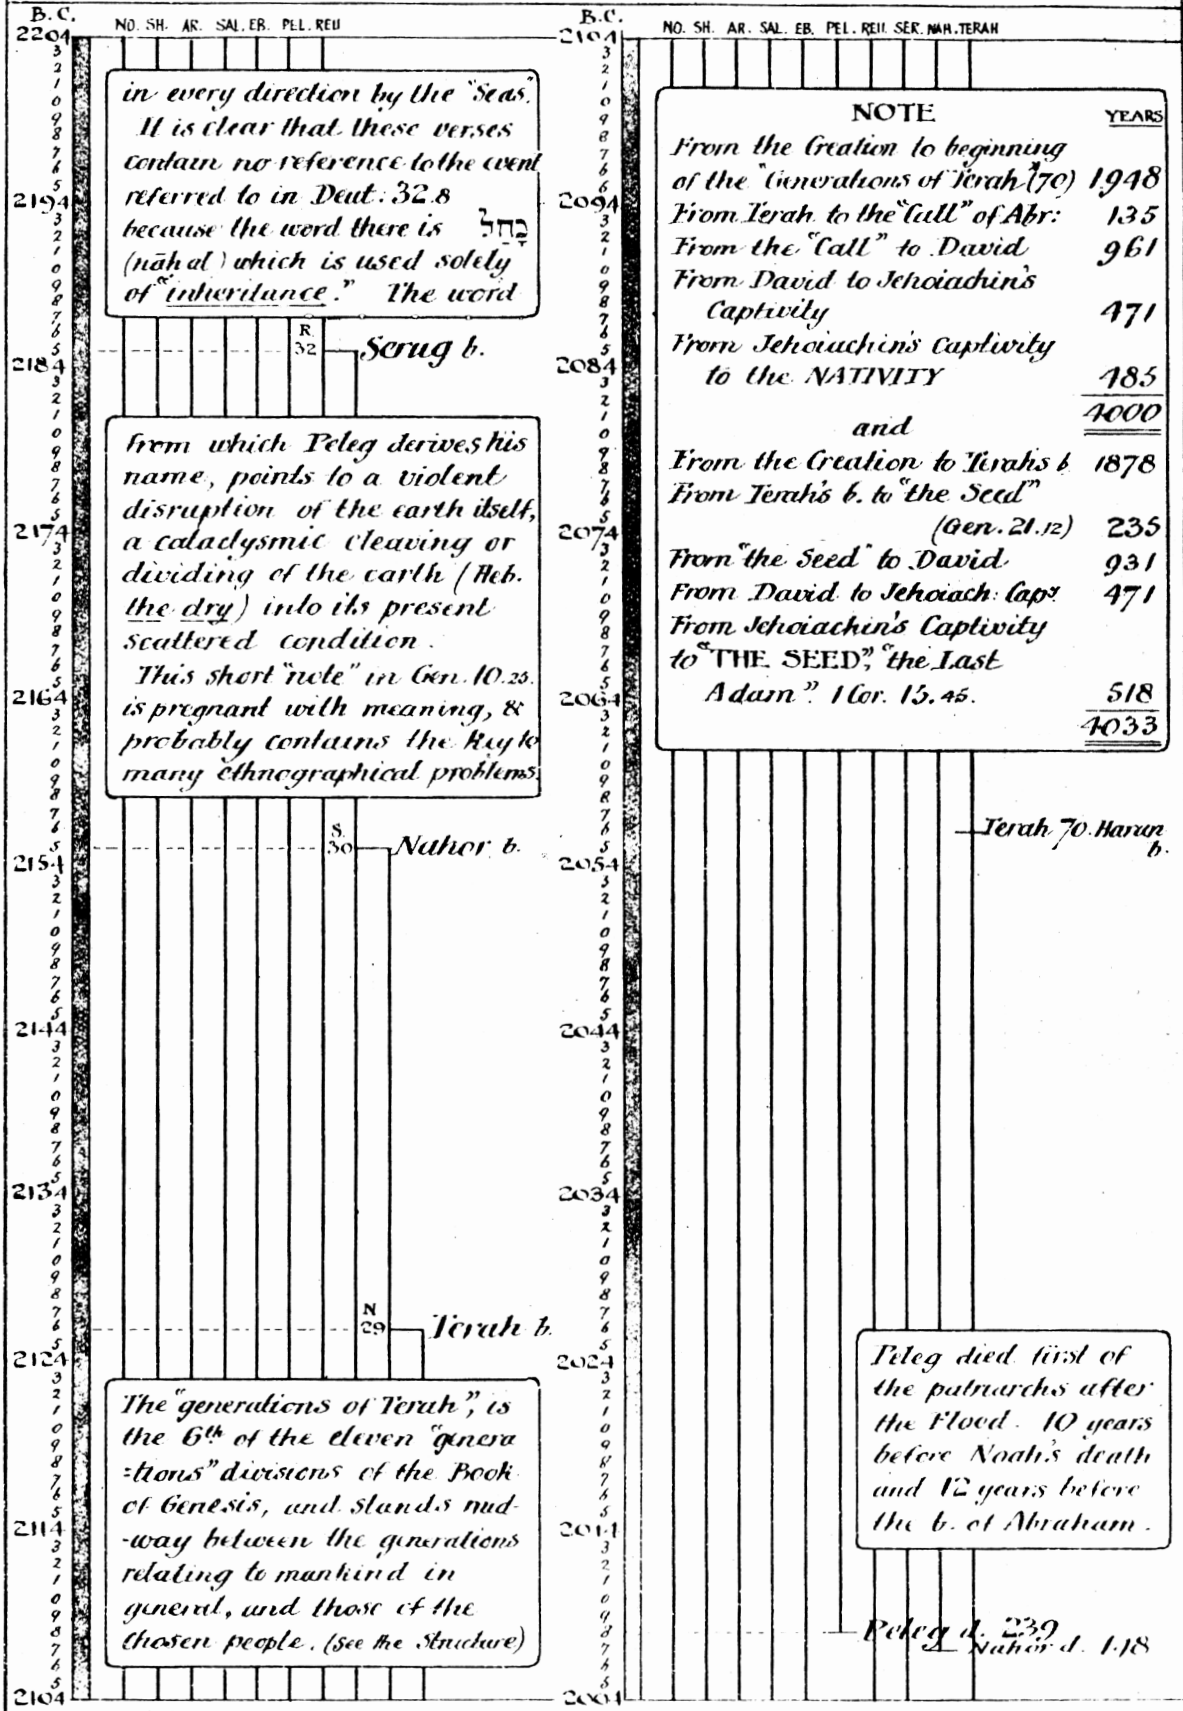 B.C.
NO. SH. AR. SAL. EB. PEL. REU
2204
in every direction by the "Seas".
It is clear that these verses
contain no reference to the event
referred to in Deut: 32.8
because the word there is נָחַל
(nāhal) which is used solely
of "inheritance." The word
2194
R.
32
Serug b.
2184
from which Peleg derives his
name, points to a violent
disruption of the earth itself,
a cataclysmic cleaving or
dividing of the earth (Heb.
the dry) into its present
scattered condition.
This short "note" in Gen. 10.25.
is pregnant with meaning, &
probably contains the key to
many ethnographical problems.
2174
2164
S.
30
Nahor b.
2154
2144
2134
N
29
Terah b.
2124
The "generations of Terah", is
the 6th of the eleven "genera
=tions" divisions of the Book
of Genesis, and stands mid-
-way between the generations
relating to mankind in
general, and those of the
chosen people. (See the Structure)
2114
2104
B.C.
NO. SH. AR. SAL. EB. PEL. REU. SER. NAH. TERAH
2104
NOTE YEARS
From the Creation to beginning
of the "Generations of Terah" (70) 1948
From Terah to the "Call" of Abr: 135
From the "Call" to David 961
From David to Jehoiachin's
Captivity 471
From Jehoiachin's Captivity
to the NATIVITY 485
4000
and
From the Creation to Terah's b. 1878
From Terah's b. to "the Seed"
(Gen. 21.12) 235
From "the Seed" to David 931
From David to Jehoiach: Capy. 471
From Jehoiachin's Captivity
to "THE SEED", "the Last
Adam". 1 Cor. 15.45. 518
4033
2094
2084
2074
2064
Terah 70. Haran
b.
2054
2044
2034
2024
Peleg died first of
the patriarchs after
the Flood. 10 years
before Noah's death
and 12 years before
the b. of Abraham.
2014
Peleg d. 239
Nahor d. 148
2004